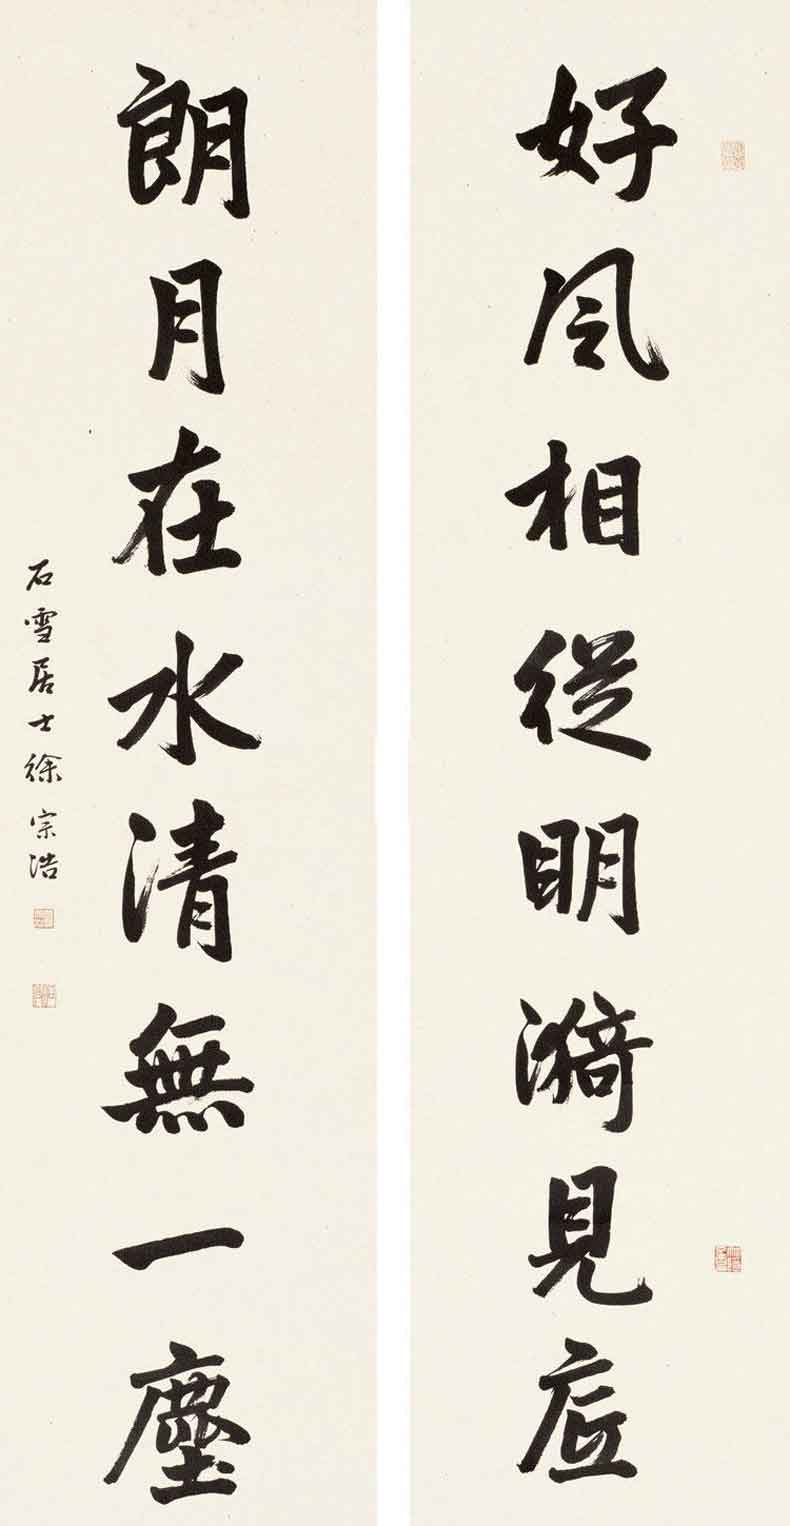 好風相從明漪見底
朗月在水清無一塵
石雪居士徐宗浩